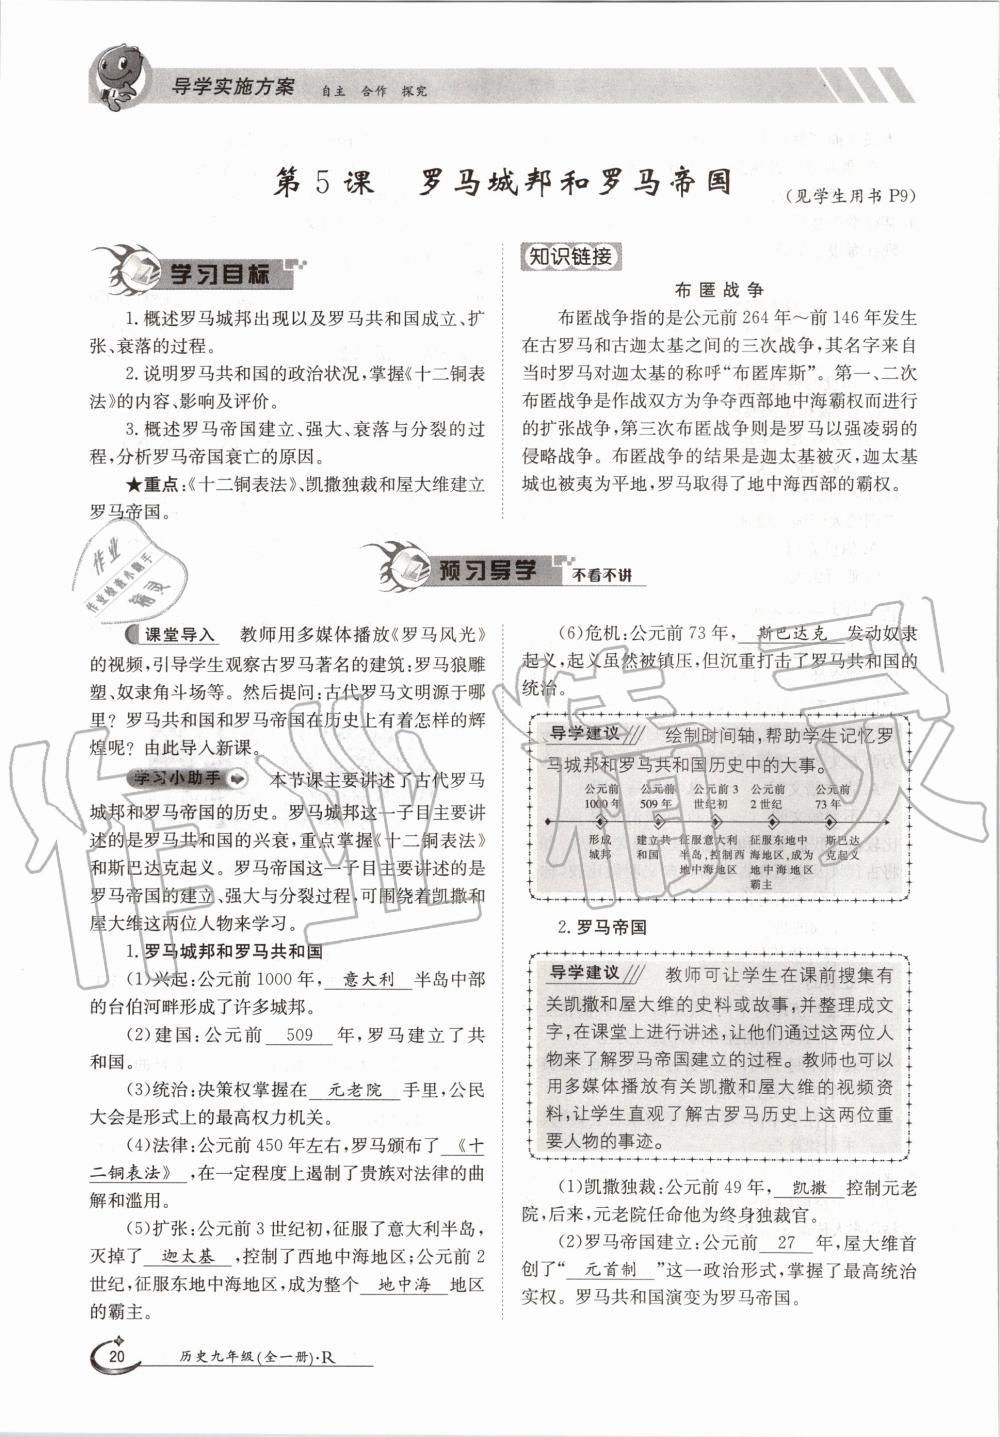 导学实施方案 自主 合作 探究
第5课 罗马城邦和罗马帝国
(见学生用书 P9)
学习目标
1.概述罗马城邦出现以及罗马共和国成立、扩
张、衰落的过程。
2.说明罗马共和国的政治状况,掌握《十二铜表
法》的内容、影响及评价。
3.概述罗马帝国建立、强大、衰落与分裂的过
程,分析罗马帝国衰亡的原因。
★重点:《十二铜表法》、凯撒独裁和屋大维建立
罗马帝国。
知识链接
布匿战争
布匿战争指的是公元前264年～前146年发生
在古罗马和古迦太基之间的三次战争,其名字来自
当时罗马对迦太基的称呼“布匿库斯”。第一、二次
布匿战争是作战双方为争夺西部地中海霸权而进行
的扩张战争,第三次布匿战争则是罗马以强凌弱的
侵略战争。布匿战争的结果是迦太基被灭,迦太基
城也被夷为平地,罗马取得了地中海西部的霸权。
预习导学 不看不讲
课堂导入 教师用多媒体播放《罗马风光》
的视频,引导学生观察古罗马著名的建筑:罗马狼雕
塑、奴隶角斗场等。然后提问:古代罗马文明源于哪
里？罗马共和国和罗马帝国在历史上有着怎样的辉
煌呢？由此导入新课。
学习小助手 本节课主要讲述了古代罗马
城邦和罗马帝国的历史。罗马城邦这一子目主要讲
述的是罗马共和国的兴衰,重点掌握《十二铜表法》
和斯巴达克起义。罗马帝国这一子目主要讲述的是
罗马帝国的建立、强大与分裂过程,可围绕着凯撒和
屋大维这两位人物来学习。
1.罗马城邦和罗马共和国
(1)兴起:公元前1000年, 意大利 半岛中部
的台伯河畔形成了许多城邦。
(2)建国:公元前 509 年,罗马建立了共
和国。
(3)统治:决策权掌握在 元老院 手里,公民
大会是形式上的最高权力机关。
(4)法律:公元前450年左右,罗马颁布了 《十
二铜表法》 ,在一定程度上遏制了贵族对法律的曲
解和滥用。
(5)扩张:公元前3世纪初,征服了意大利半岛,
灭掉了 迦太基 ,控制了西地中海地区;公元前2
世纪,征服东地中海地区,成为整个 地中海 地区
的霸主。
(6)危机:公元前73年, 斯巴达克 发动奴隶
起义,起义虽然被镇压,但沉重打击了罗马共和国的
统治。
导学建议 绘制时间轴,帮助学生记忆罗
马城邦和罗马共和国历史中的大事。
公元前 公元前 公元前3 公元前 公元前
1000年 509年 世纪初 2世纪 73年
形成 建立共 征服意大利 征服东地中 斯巴达
城邦 和国 半岛,控制西 海地区,成为 克起义
地中海地区 地中海地区
霸主
2.罗马帝国
导学建议 教师可让学生在课前搜集有
关凯撒和屋大维的史料或故事,并整理成文
字,在课堂上进行讲述,让他们通过这两位人
物来了解罗马帝国建立的过程。教师也可以
用多媒体播放有关凯撒和屋大维的视频资
料,让学生直观了解古罗马历史上这两位重
要人物的事迹。
(1)凯撒独裁:公元前49年, 凯撒 控制元老
院,后来,元老院任命他为终身独裁官。
(2)罗马帝国建立:公元前 27 年,屋大维首
创了“ 元首制 ”这一政治形式,掌握了最高统治
实权。罗马共和国演变为罗马帝国。
20 历史九年级(全一册)·R
作业
作业检查小助手
精灵
作业精灵